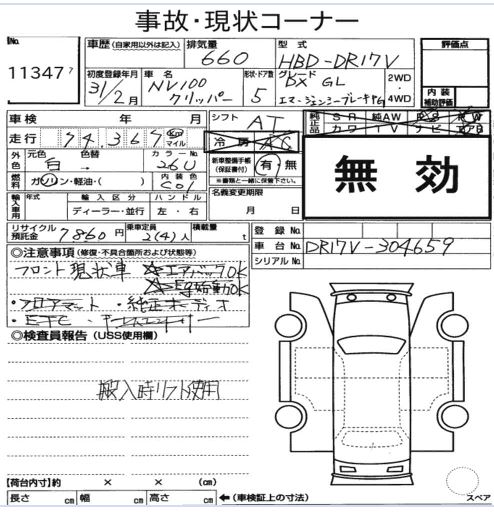 事故・現状コーナー
No. 11347 7
車歴 (自家用以外は記入) 排気量 660 型式 HBD-DR17V 評価点
初度登録年月 31/2月 車名 NV100 クリッパー 形状・ドア数 5 グレード DX GL エマージェンシーブレーキPG 2WD・4WD 内装補助評価
車検 年 月 シフト AT 純正品 SR 純AW PS PW カワ TV ナビ エアB
走行 74,367 km マイル 冷房 AC
外色 元色 白 色替 → カラーNo. 26U 新車整備手帳(保証書付) 有・無 無効
燃料 ガソリン・軽油・( ) 内装色 CO1 ※書類と一緒に保管して下さい。
輸入車用 年式 輸入区分 ディーラー・並行 ハンドル 左・右 名義変更期限 月 日
リサイクル預託金 7860円 乗車定員 2(4)人 積載量 t 登録No.
◎注意事項 (修復・不具合箇所および状態等) 車台No. DR17V-304659
シリアルNo.
フロント現状車 ☆エアバッグOK
☆Eg始動OK
・フロアマット ・純正オーディオ
・ETC
◎検査員報告 (USS使用欄)
搬入時リフト使用
【荷台内寸】約 × × (cm)
長さ cm 幅 cm 高さ cm ←(車検証上の寸法) スペア